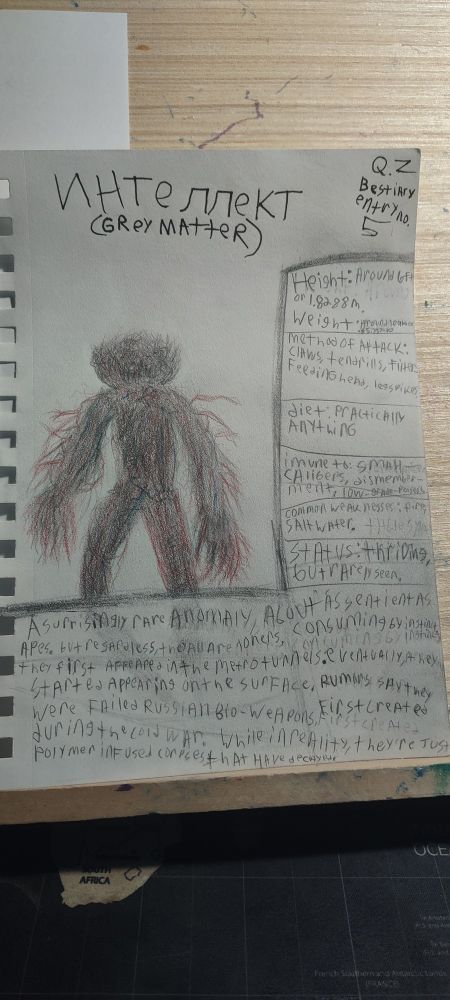 ИНТеллекТ
(GReY MATTeR)
Q.Z
Bestiary
entry no.
5
Height: Around 6ft
or 1.8288m.
Weight:
method of Attack:
Claws, tendrills, Filter
Feeding head, leg spikes
diet: practically
Anything
imune to: small
Calibers, dismember-
ment, low-grade
common weaknesses: fire,
Saltwater.
Status: thriding,
but rarely seen.
A suprisingly rare Anomaly, About As sentient As
Apes. but regardless, they all are loners, consuming by instinct
they first Appeared in the metro tunnels. eventually, they
started Appearing on the surface, Rumors say they
were Failed Russian Bio-weapons, First created
during the cold war. While in reality, they're Just
Polymer infused corpces that HAVe
SOUTH
AFRICA
OCE
French Southern and Antarctic Lands
(FRANCE)